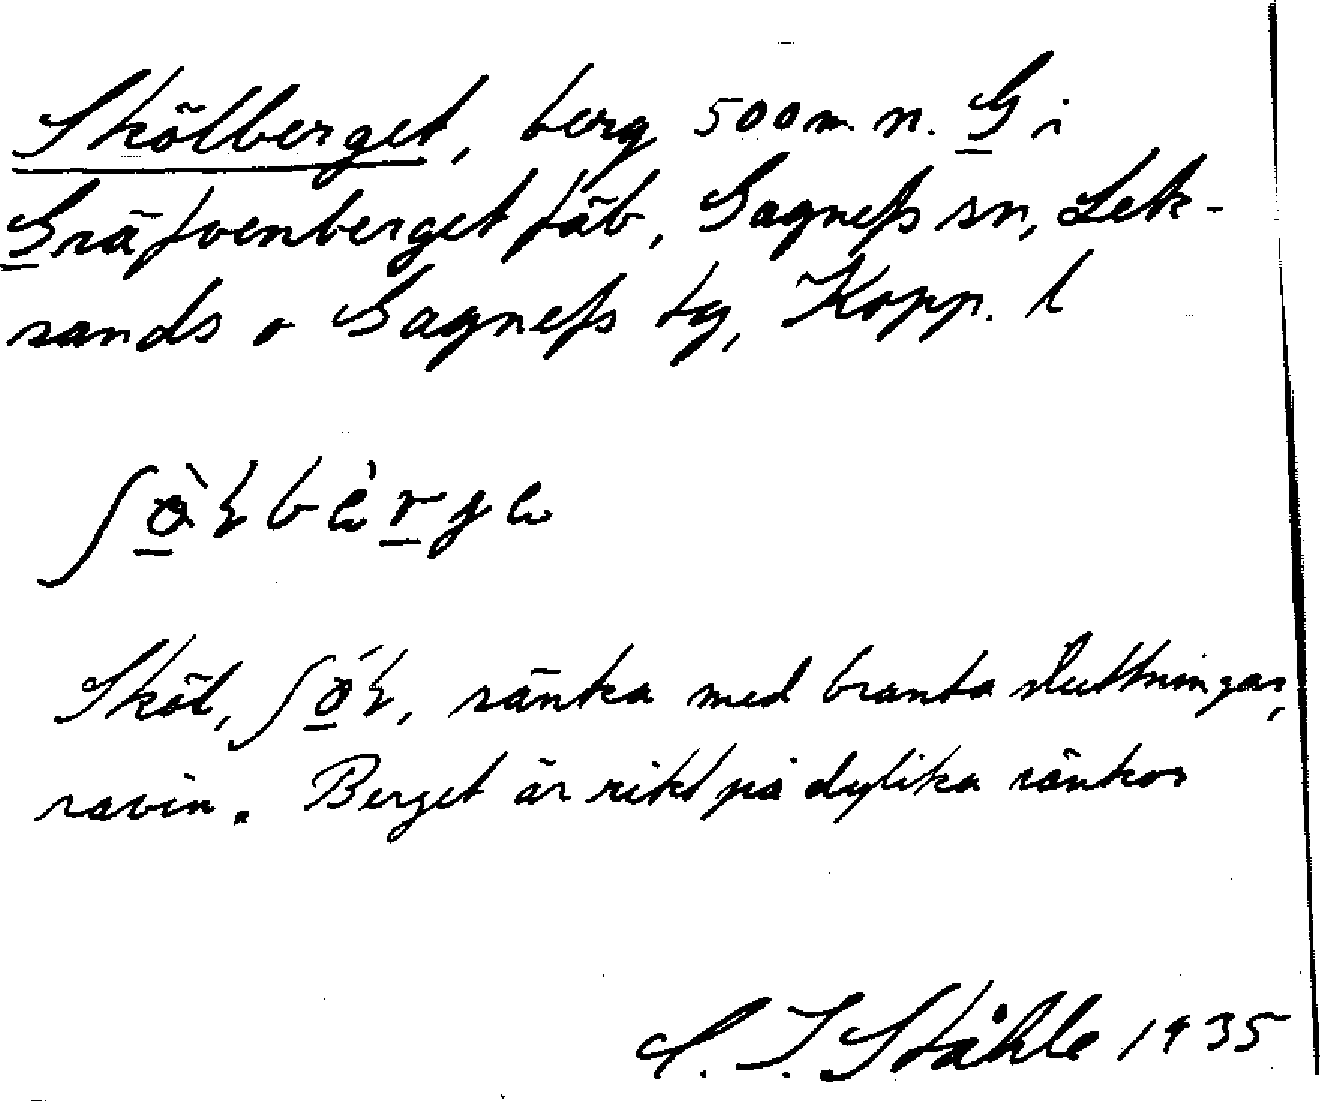 Skölberget, berg 500 m n. G i
Gräfvenberget fäb, Gagnefs sn, Lek-
sands o Gagnefs tg, Kopp. l
Sköl, sänka med branta sluttningar,
ravin. Berget är rikt på dylika sänkor
C. I. Ståhle 1935